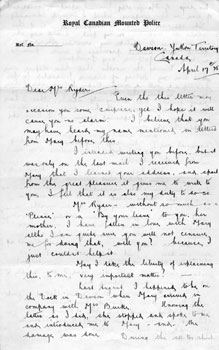 Royal Canadian Mounted Police
Ref. No.
Dawson, Yukon Territory
Canada,
April 17th
Dear Mrs Ryder
Even tho this letter may
occasion you some surprise, yet I hope it will
cause you no alarm. I believe that you
may have heard my name mentioned in letters
from Mary before this.
I intended writing you before, but it
was only on the last mail I received from
Mary that I learned your address, and apart
from the great pleasure it gives me to write to
you I feel that it is also my duty to do so.
Mrs Ryder - without so much as a
"Please" or a "By your leave" to you, her
mother, I have fallen in love with Mary
and I am quite sure you will not censure
me for doing that, will you? because, I
just couldn't help it.
May I take the liberty of explaining
this, to me, very important matter?
last August I happened to be on
the Dock in Dawson when Mary arrived in
company with Mrs Burke. Knowing the
latter as I did, she stopped and spoke to me
and introduced me to Mary - and the
damage was done.
During the